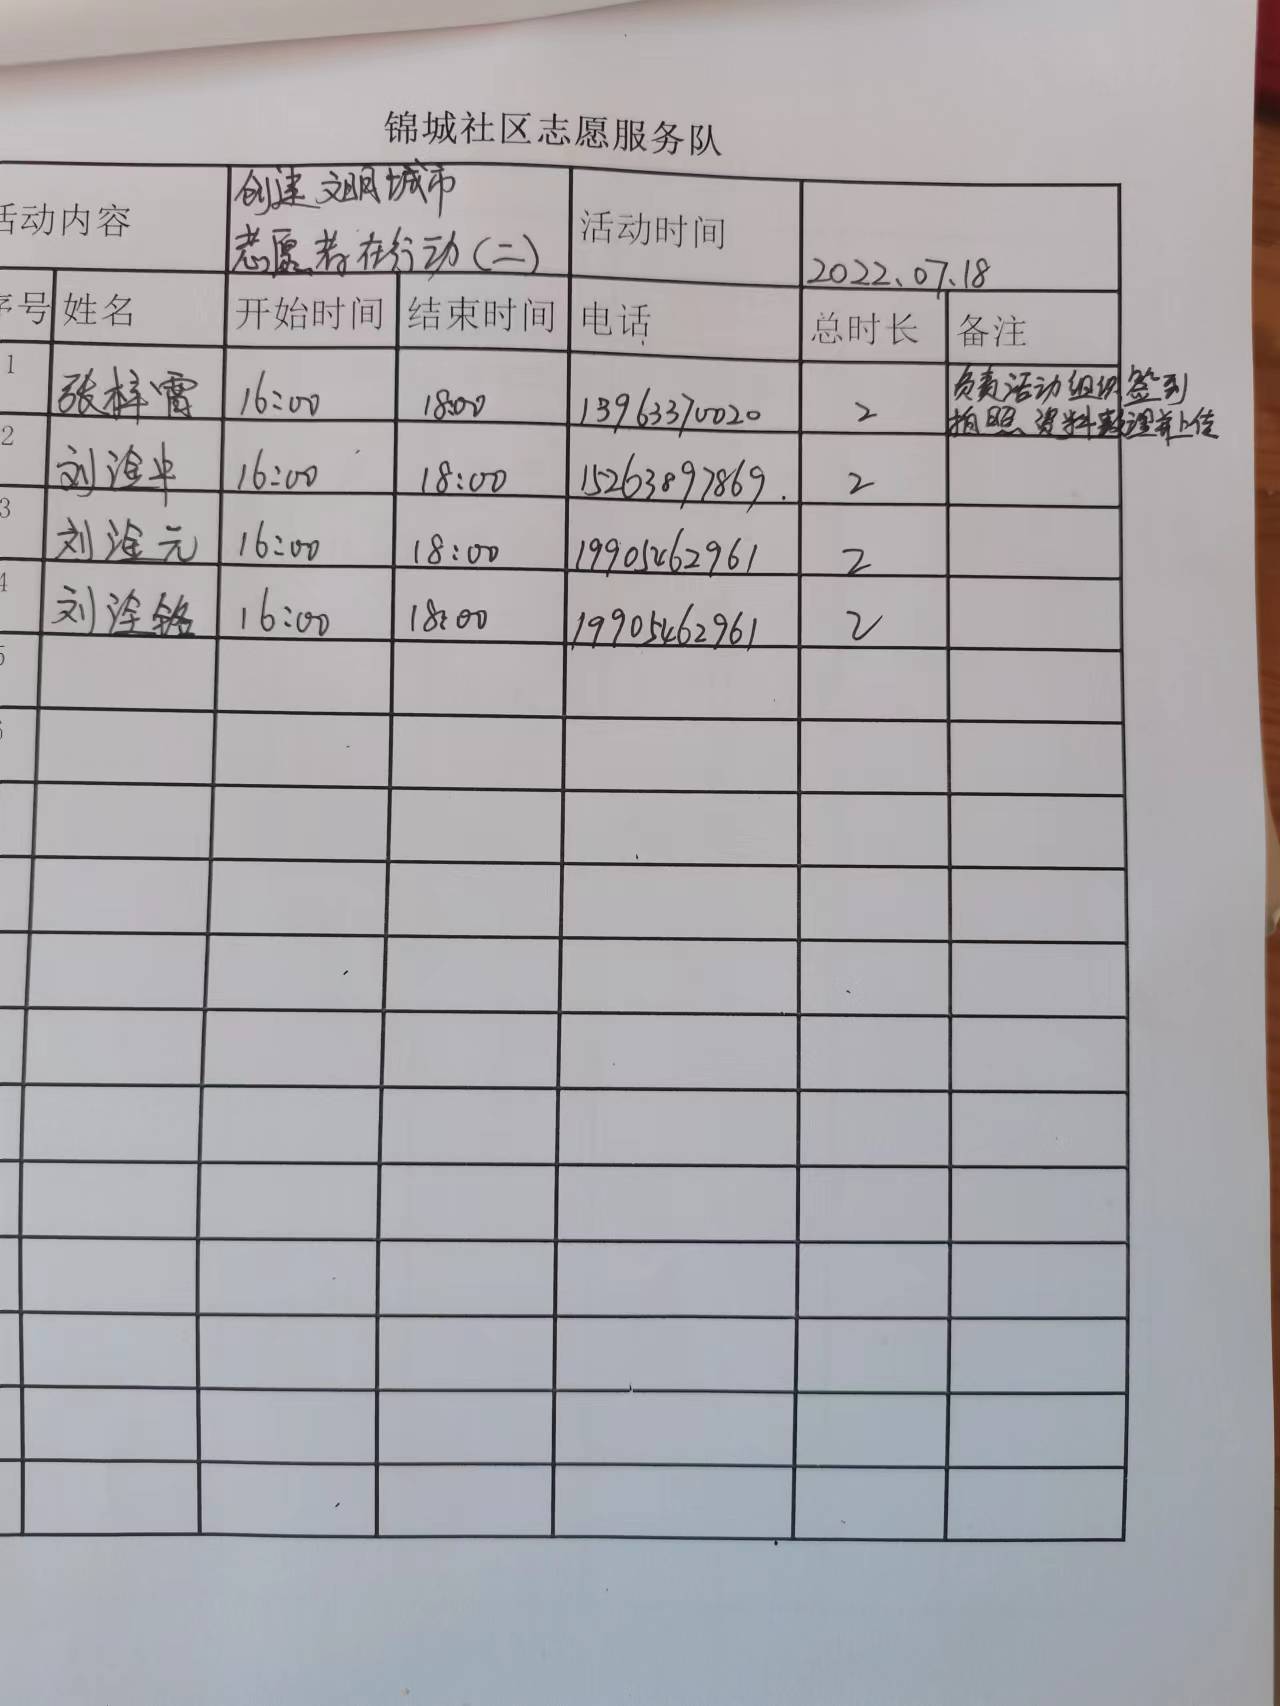 锦城社区志愿服务队
活动内容 创建文明城市 活动时间
志愿者在行动(二) 2022.07.18
序号 姓名 开始时间 结束时间 电话 总时长 备注
1 张梓霄 16:00 18:00 13963370020 2 负责活动组织签到
拍照 资料整理并上传
2 刘淦 16:00 18:00 15263897869. 2
3 刘淦元 16:00 18:00 19905462961 2
4 刘淦铭 16:00 18:00 19905462961 2
5
6